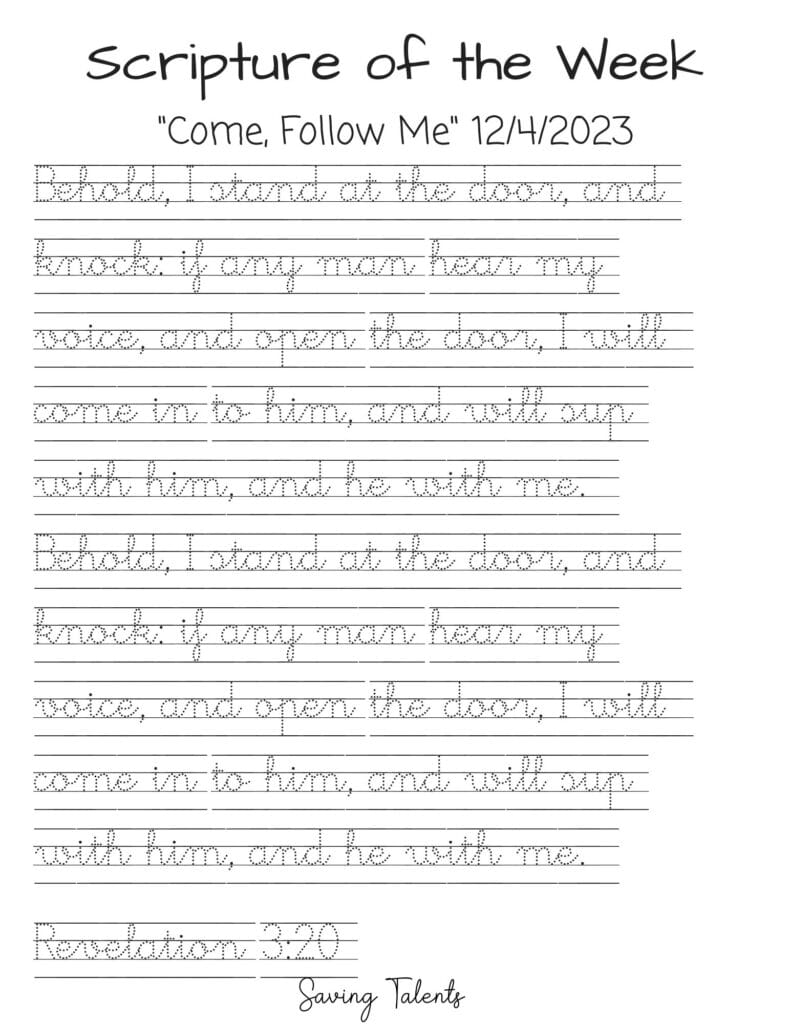 Scripture of the Week
"Come, Follow Me" 12/4/2023
Behold, I stand at the door, and
knock: if any man hear my
voice, and open the door, I will
come in to him, and will sup
with him, and he with me.
Behold, I stand at the door, and
knock: if any man hear my
voice, and open the door, I will
come in to him, and will sup
with him, and he with me.
Revelation 3:20
Saving Talents